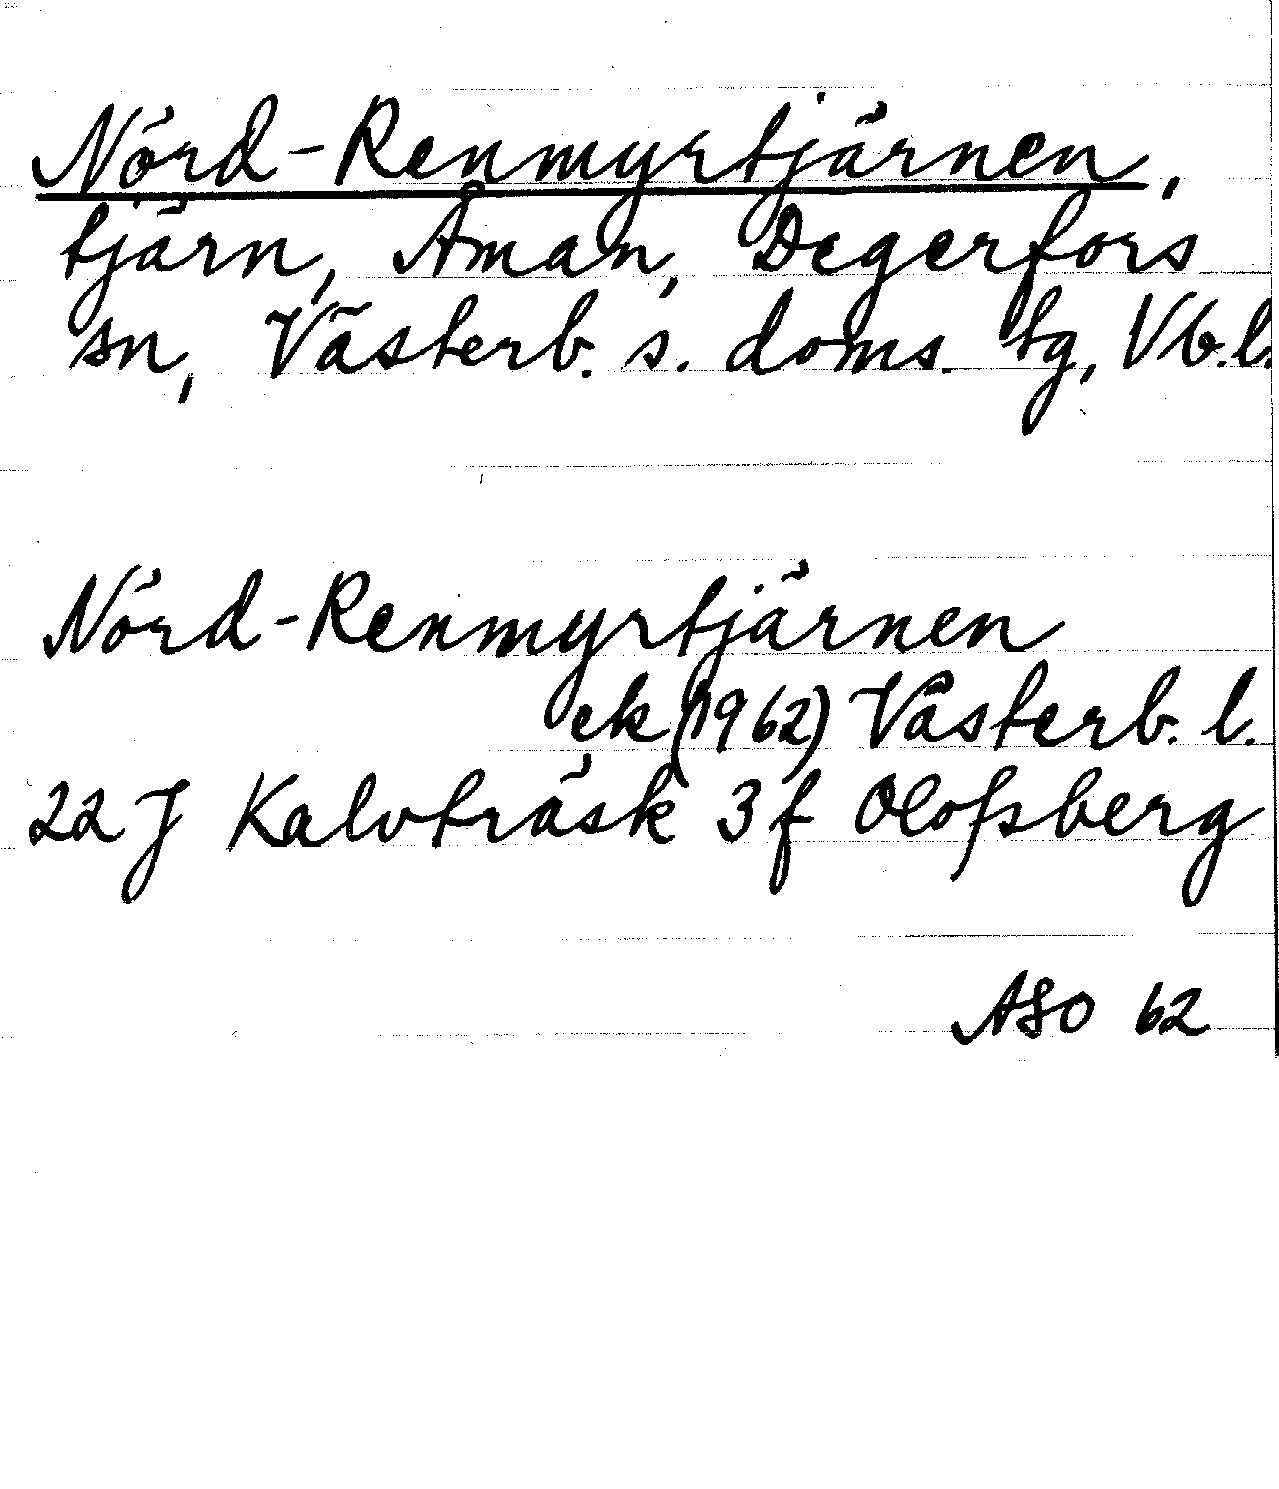 Nörd-Renmyrtjärnen,
tjärn, Åman, Degerfors
sn, Västerb. s. doms. tg, Vb.l.
Nörd-Renmyrtjärnen
ek (1962) Västerb. l.
22 J Kalvträsk 3 f Olofsberg
ASO 62